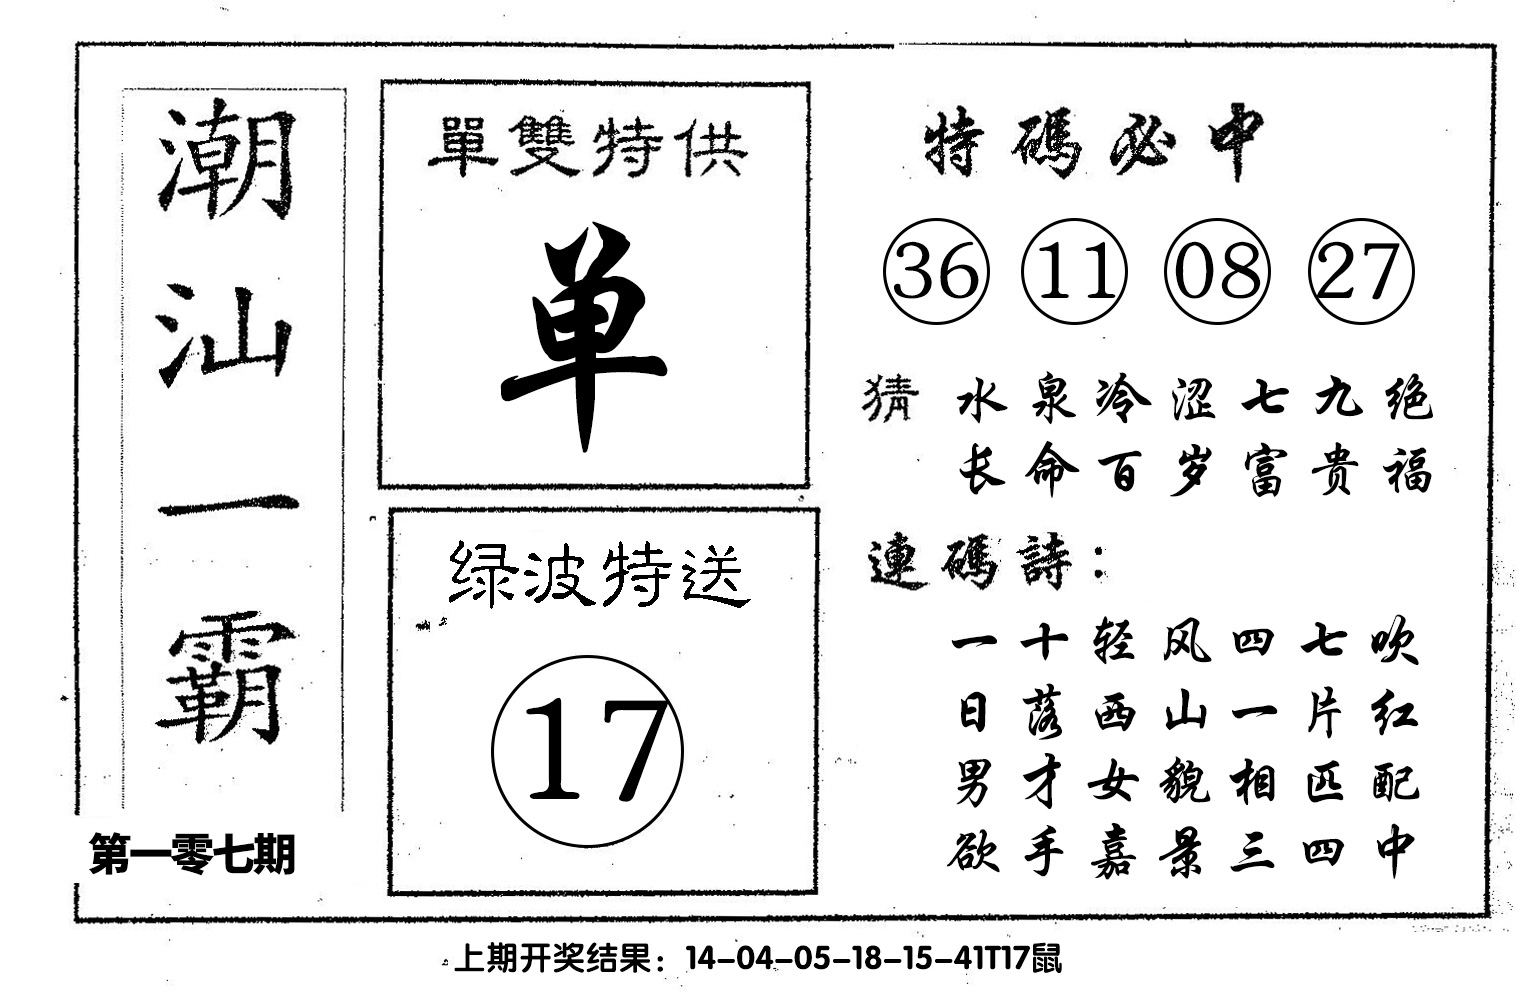 潮汕一霸
第一零七期
單雙特供
单
绿波特送
17
特碼必中
36 11 08 27
猜 水泉冷涩七九绝
长命百岁富贵福
連碼詩：
一十轻风四七吹
日落西山一片红
男才女貌相匹配
欲手嘉景三四中
上期开奖结果：14-04-05-18-15-41T17鼠